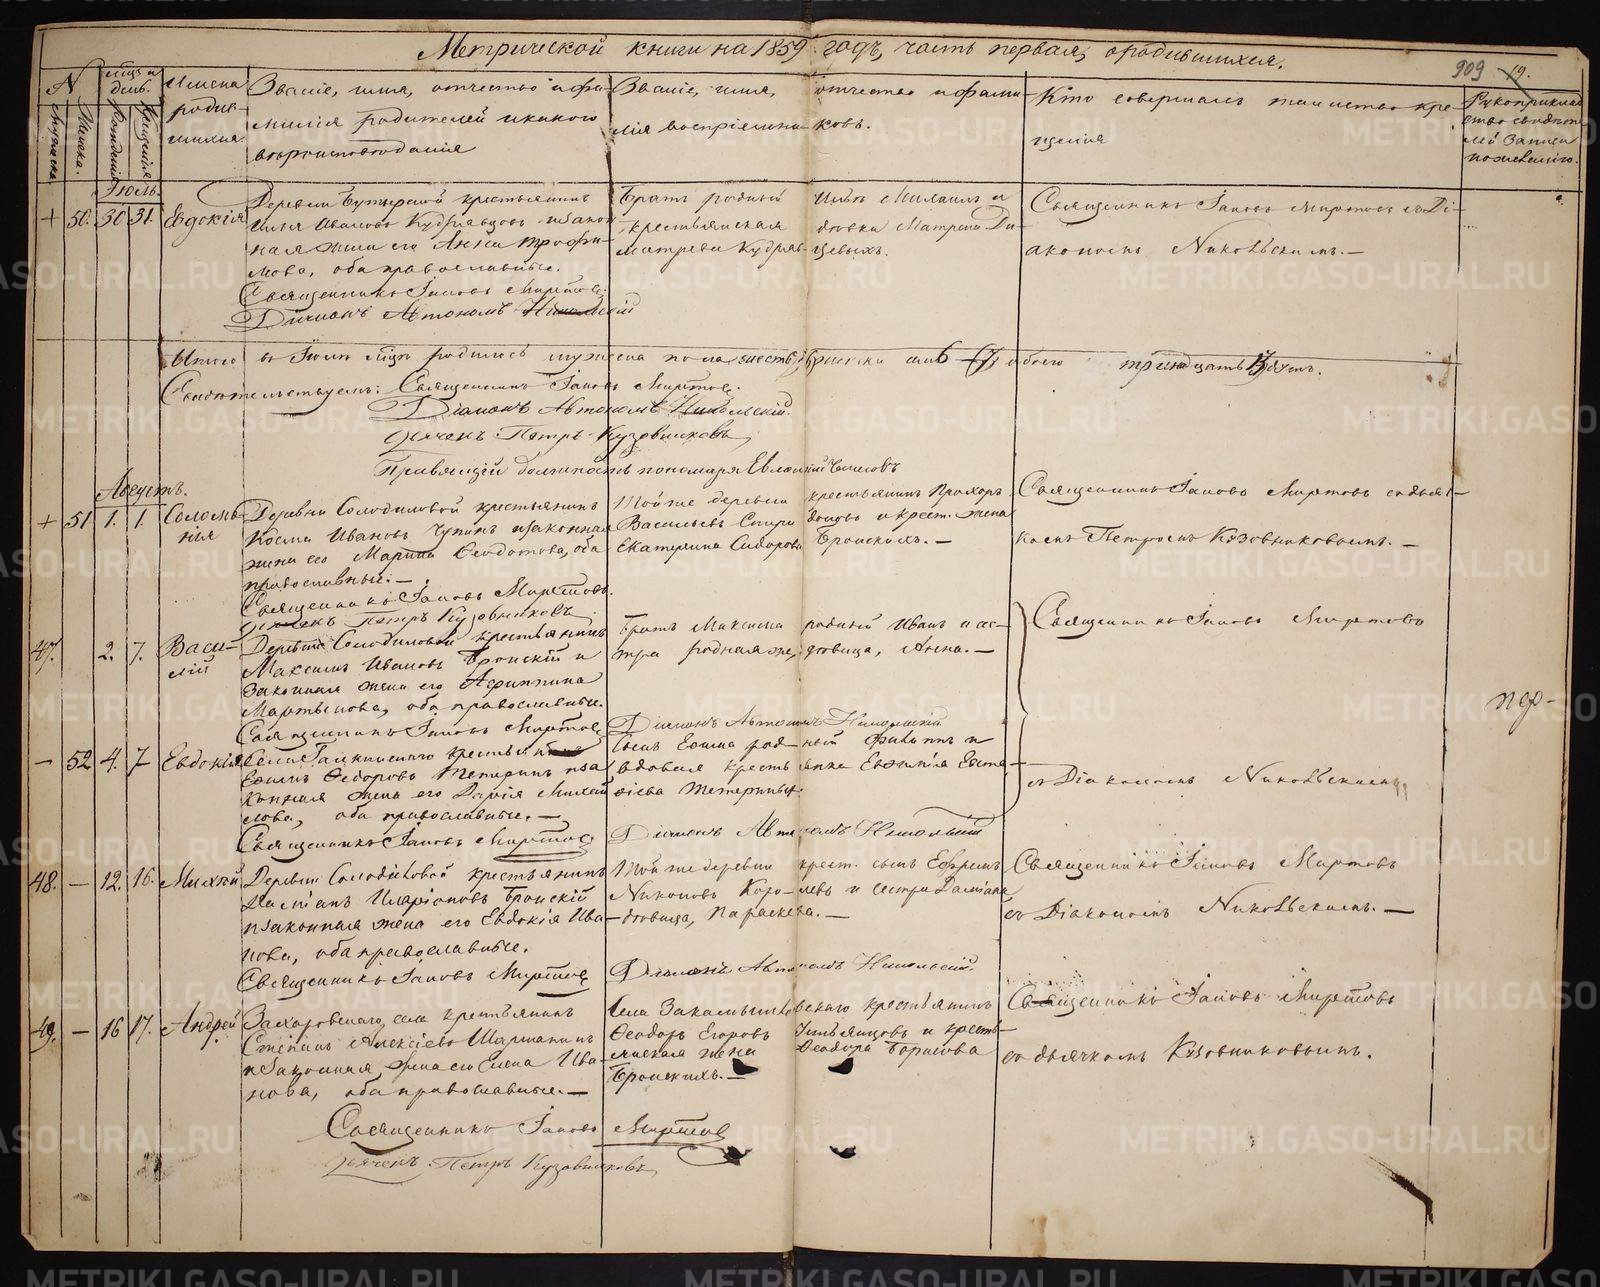 Метрической книги на 1859 годъ, часть первая, о родившихся.
909 19.
N
мѣсяцъ и день.
Мужеска.
Женска.
Рожденія
Крещенія
Имена родив-
шихся.
Званіе, имя, отчество и фа-
милія родителей и какого
вѣроисповѣданія
Званіе, имя, отчество и фами-
лія воспріемни-ковъ.
Кто совершалъ таинство кре-
щенія
Рукоприклад
ство свидѣте
лей записи
по желанію.
Іюль.
+ 50. 30 31. Евдокія
Деревни Бутырской крестьянинъ
Илья Ивановъ Кудрявцовъ и закон
ная жена его Анна Трофи-
мова, оба православные.
Священникъ Іаковъ Миртовъ.
Діаконъ Автономъ Никольскій
Братъ родный Ильи Михаилъ и
крестьянская дѣвка Матрена Ди-
митрева Кудряв-цевыхъ.
Священникъ Іаковъ Миртовъ съ Ді-
акономъ Никольскимъ.—
Итого въ Іюлѣ мцѣ родилось мужеска пола шесть, женска семь (7) обоего тринадцать 13 душъ.
Свидѣтельствуемъ: Священникъ Іаковъ Миртовъ.
Діаконъ Автономъ Никольскій.
Дьячекъ Петръ Кузовниковъ,
Правящій должность пономаря Евлампій
Августъ.
+ 51 1. 1. Соломо-
нія
Деревни Солодиловой крестьянинъ
Косма Ивановъ Чупинъ и законная
жена его Марина Ѳеодотова, оба
православные.—
Священникъ Іаковъ Миртовъ.
Дьячекъ Петръ Кузовниковъ
Той же деревни крестьянинъ Прохоръ
Васильевъ Спиридоновъ и крест. жена
Екатерина Сидорова Бронскихъ.—
Священникъ Іаковъ Миртовъ съ дьяч-
комъ Петромъ Кузовниковымъ.—
47. 2. 7. Васи-
лій
Деревни Солодиловой крестьянинъ
Максимъ Ивановъ Бронскій и
законная жена его Агриппина
Мартынова, оба православные.
Священникъ Іаковъ Миртовъ
Діаконъ Автономъ Никольскій
Братъ Максима родный Иванъ и сес-
тра родная же, дѣвица, Анна.—
Священникъ Іаковъ Миртовъ
— 52 4. 7 Евдокія
Села Галкинскаго крестьянинъ
Еѳимъ Ѳедоровъ Тетеринъ и за
конная жена его Дарія Михай
лова, оба православные.—
Священникъ Іаковъ Миртовъ
Діаконъ Автономъ Никольскій
Сынъ Еѳима род-ный Филиппъ и
вдовая крестьянка Евѳимія Евста-
фіева Тетерины.
съ Діакономъ Никольскимъ
48. — 12. 16. Михей
Деревни Солодиловой крестьянинъ
Даміанъ Иларіоновъ Бронскій
и законная жена его Евдокія Ива
нова, оба православные.
Священникъ Іаковъ Миртовъ
Діаконъ Автономъ Никольскій.
Той же деревни крест. сынъ Ефремъ
Никоновъ Коро-левъ и сестра Даміана
дѣвица, Параскева.—
Священникъ Іаковъ Миртовъ
съ Діакономъ Никольскимъ.—
49. — 16 17. Андрей
Захаровскаго села крестьянинъ
Стефанъ Алексѣевъ Шерманинъ
и законная жена его Елена Ива-
нова, оба православные.—
Села Закамышловскаго крестьянинъ
Ѳеодоръ Егоровъ Устьянцовъ и кресть-
янская жена Ѳеодора Борисова
Бронскихъ.—
Священникъ Іаковъ Миртовъ
съ дьячкомъ Кузовниковымъ.
Священникъ Іаковъ Миртовъ
Дьячекъ Петръ Кузовниковъ
METRIKI.GASO-URAL.RU